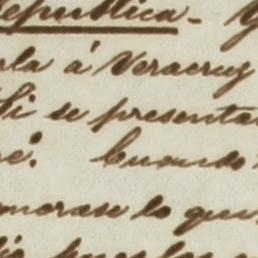 Republica_ Y
rla á Veracruz
Si se presenta
ré. Cuando
morase lo que